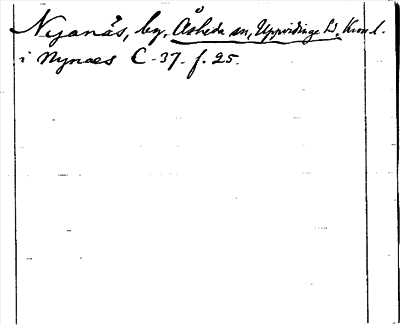 Nyanäs, by, Åsheda sn, Uppvidinge hd, Kron. l.
i Nynaes C-37. f. 25.